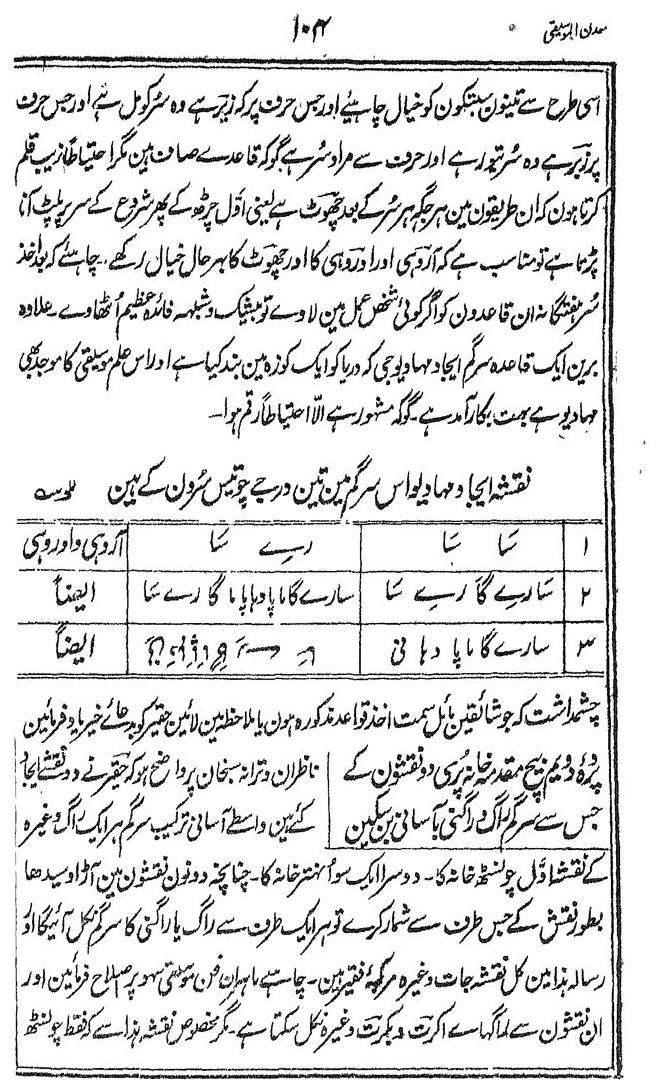 معدن الموسیقی
۱۰۴
اسی طرح سے تینون سبتکون کو خیال چاہیئے اور جس حرف پر کہ زیر ہے وہ سُر کومل ہے اور جس حرف
پر زبر ہے وہ سُر تیور ہے اور حرف سے مراد سُر ہے گو کہ قاعدے صاف ہین مگر احتیاطاً زیب قلم
کرتا ہون کہ ان طریقون مین ہر جگہ ہر سُر کے بعد چھوٹ ہے یعنی اوّل چڑھ کے پھر شروع کے سر پر پلٹ آنا
پڑتا ہے تو مناسب ہے کہ آروہی اور اوروہی کا اور چھوٹ کا بہر حال خیال رکھے۔ چاہئے کہ بعد اخذ
سُر ہفتگانہ ان قاعدون کو اگر کوئی شخص عمل مین لاوے تو بیشک و شبہہ فائدہ عظیم اُٹھاوے۔ علاوہ
برین ایک قاعدہ سرگم ایجاد مہادیو جی کہ دریا کو ایک کوزہ مین بند کیا ہے اور اس علم موسیقی کا موجد بھی
مہادیو ہے بہت بکار آمد ہے۔ گو کہ مشہور ہے الّا احتیاطاً رقم ہوا۔
نقشہ ایجاد مہادیو اس سرگم مین تین درجے چوتیس سُرون کے ہین
۱ سَا سَا رے سَا آروہی و اوروہی
۲ سَا رے گَا رے سَا سا رے گا ما پا دہا پا ما گا رے سَا ایضاً
۳ سا رے گا ما پا دہا نی ایضاً
چشمداشت کہ جو شائقین مائل سمت اخذ قواعد مذکورہ ہون یا ملاحظہ مین لائین حقیر کو بدعائے خیر یاد فرمائین
پردۂ دویم بیچ مقدمہ خانہ پُری دو نقشون کے ناظران و ترانہ سنجان پر واضح ہو کہ حقیر نے دو نقشے ایجاد
جس سے سرگم راگ و راگنی بآسانی بن سکین کئے ہین واسطے آسانی ترکیب سرگم ہر ایک راگ وغیرہ
کے نقشہ اوّل چونسٹھ خانہ کا۔ دوسرا ایک سو اُنہتر خانہ کا۔ چنانچہ دونون نقشون مین آڑا و سیدھا
بطور نقش کے جس طرف سے شمار کرے تو ہر ایک طرف سے راگ یا راگنی کا سرگم نکل آئیگا اور
رسالہ ہذا مین کل نقشہ جات وغیرہ فقیر ہین۔ چاہئے ماہران فن موسیقی سہو پر اصلاح فرمائین اور
ان نقشون سے اکرت و بکرت وغیرہ نکل سکتا ہے۔ مگر مخصوص نقشہ ہذا سے کہ فقط چونسٹھ